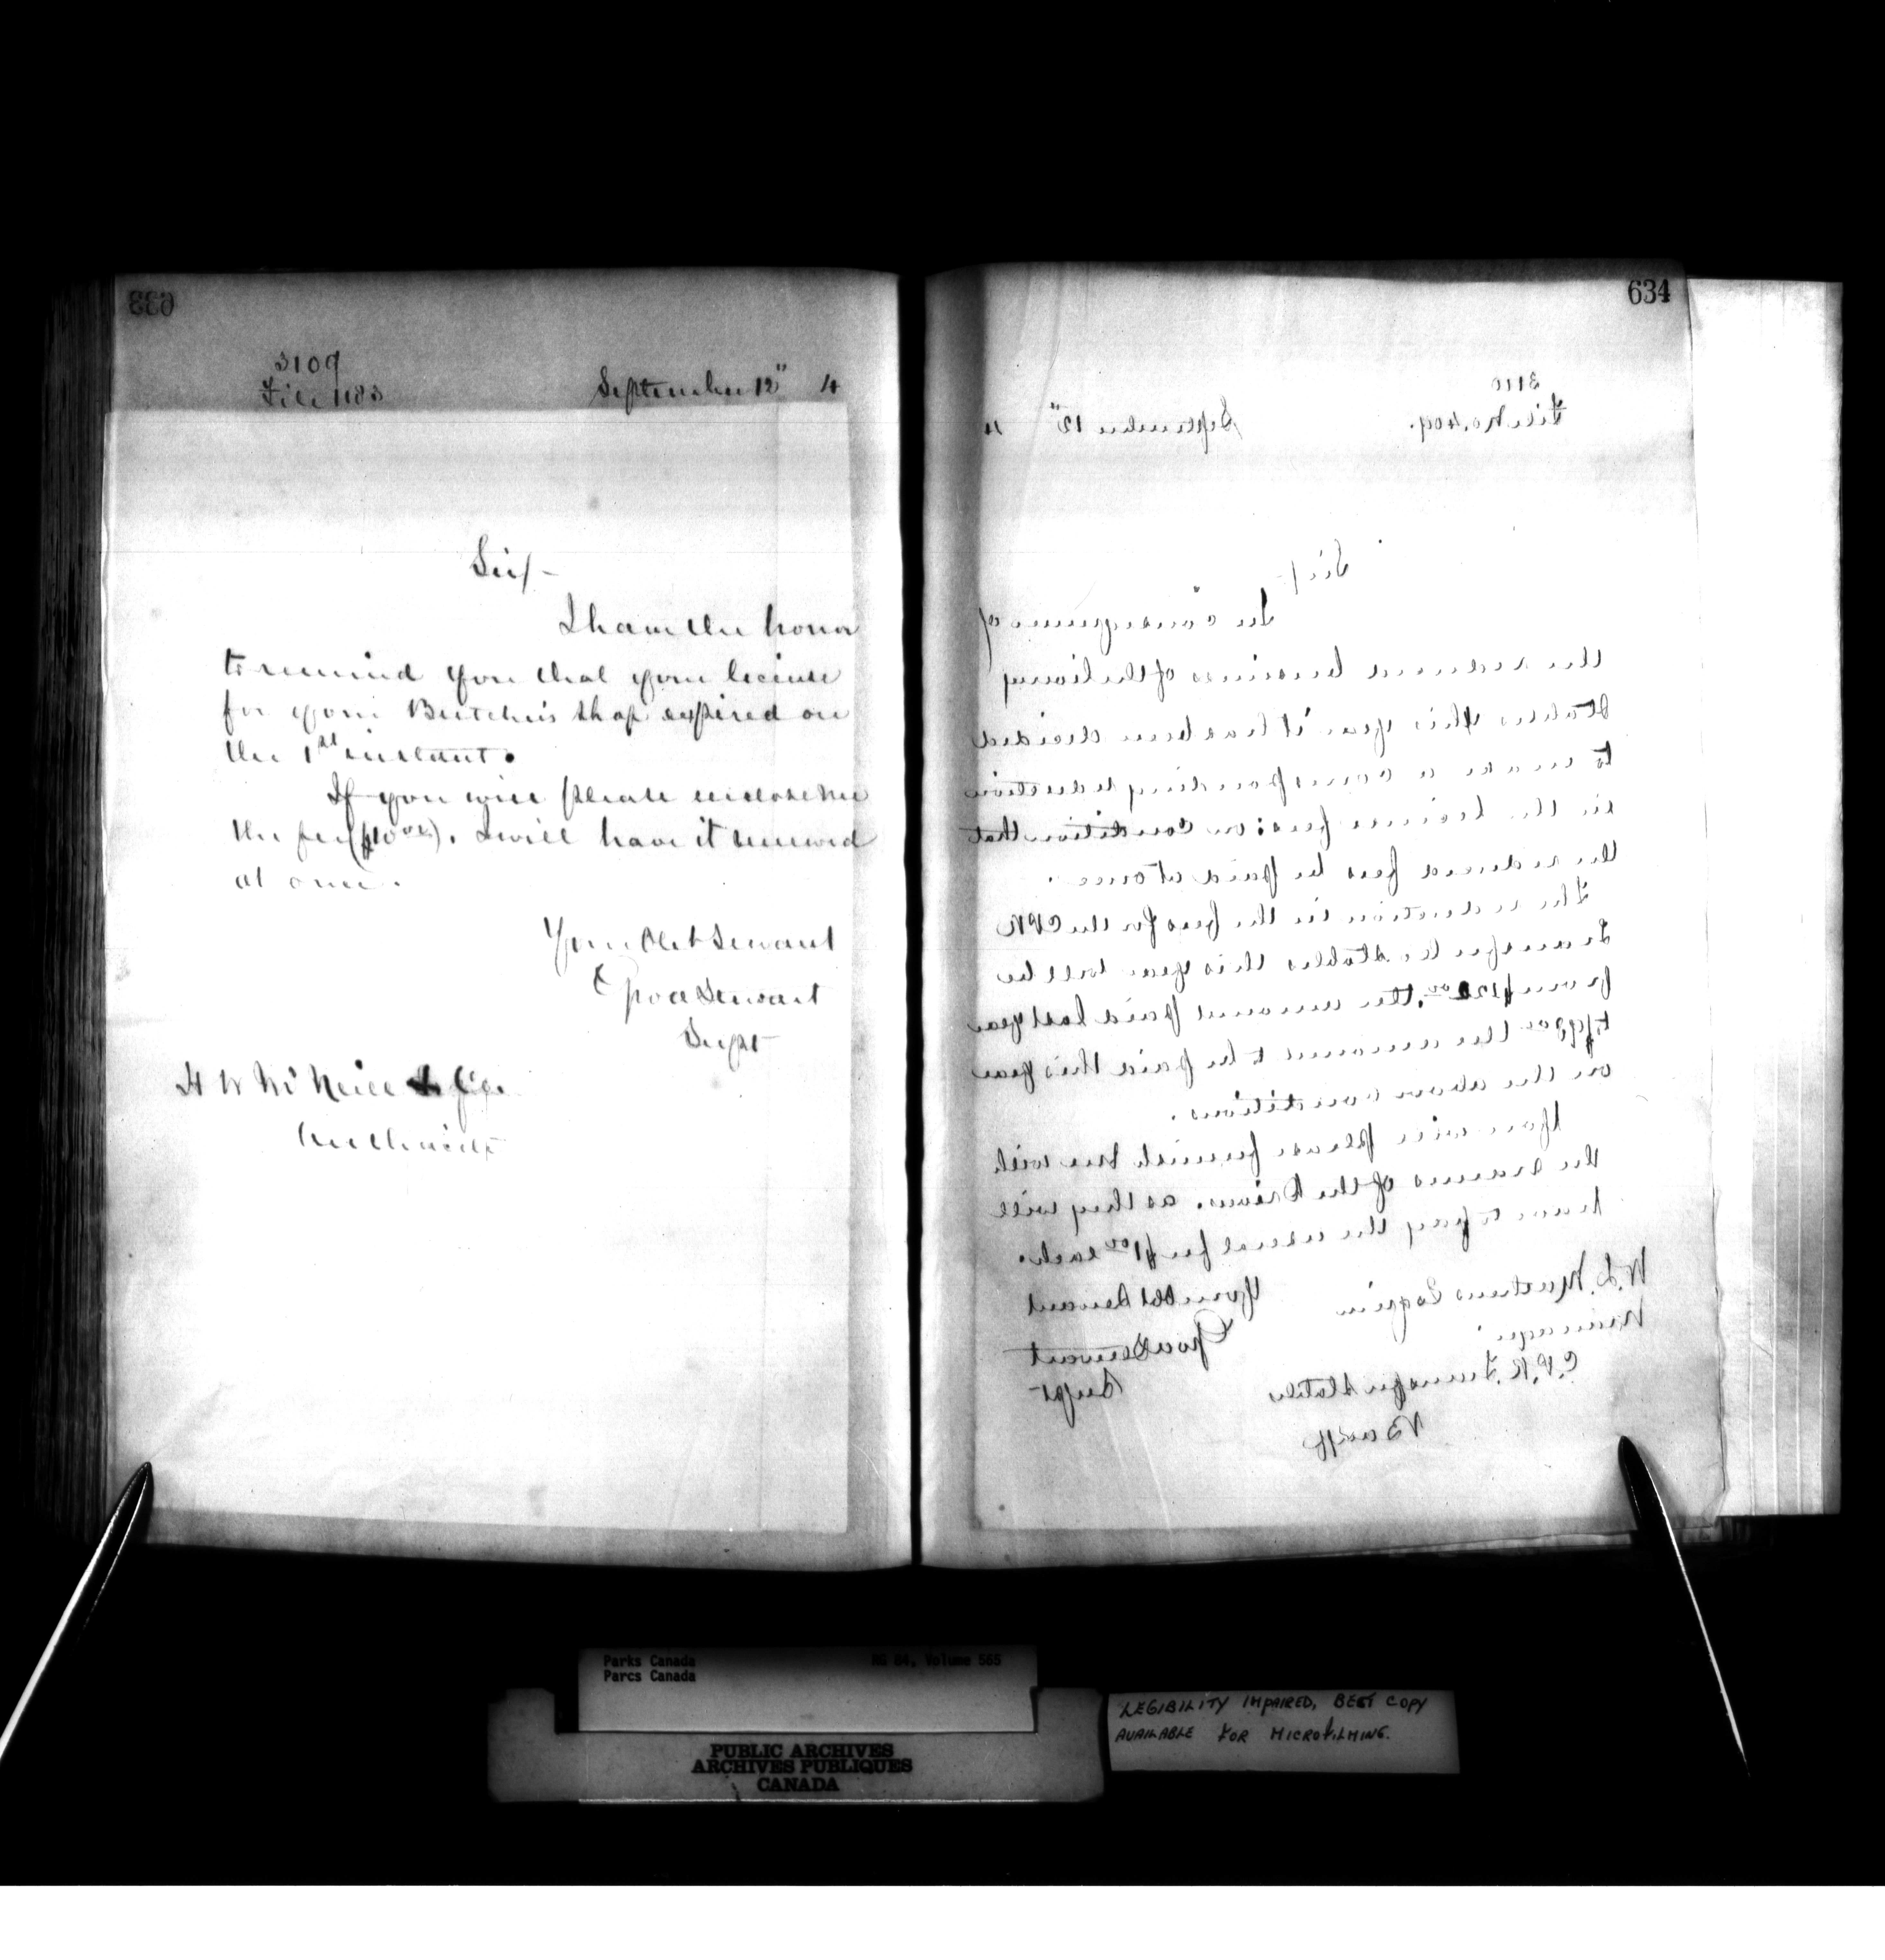 633
3109
File 1183
September 12" 4
Sir/-
I have the honor
to remind you that your license
for your Butcher's shop expired on
the 1st instant.
If you will please enclose me
the fee ($10 00). I will have it renewed
at once.
Your Obt Servant
Supt
H W McNeill
634
3110
File No. 409.
September 12" 4
Sir/-
In consequence of
the reduced business of the livery
stables this year it has been decided
to make a corresponding reduction
in the license fees: on condition that
the reduced fees be paid at once.
The reduction in the fees for the CPR
Transfer Co. stables this year will be
from the amount paid last year
to the amount to be paid this year
on the above conditions.
You will please furnish me with
the names of the Drivers. as they will
have to pay the usual fee $1 00 each.
Your Obt Servant
Supt
W.L. Mathews Esquire
Manager
C.P.R. Transfer Stables
Banff
Parks Canada
Parcs Canada
RG 84, Volume 565
PUBLIC ARCHIVES
ARCHIVES PUBLIQUES
CANADA
LEGIBILITY IMPAIRED, BEST COPY
AVAILABLE FOR MICROFILMING.